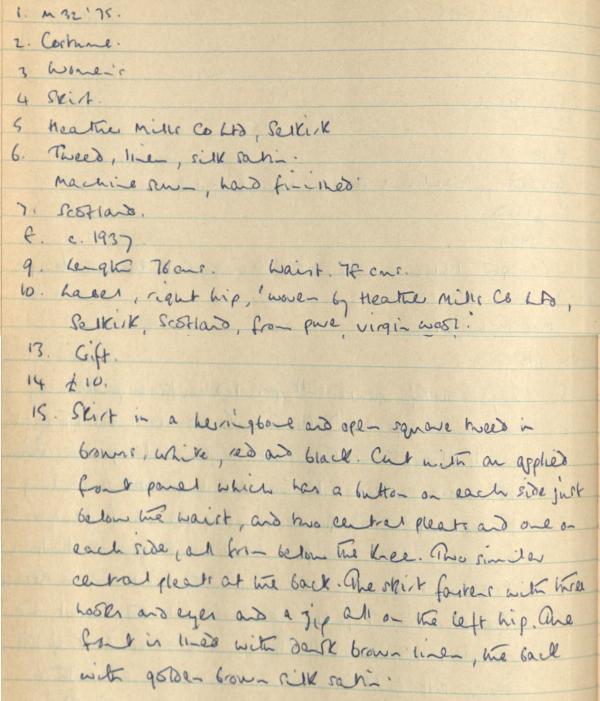 1. M 32 '75.
2. Costume.
3 Women's
4 Skirt.
5 Heather Mills Co Ltd, Selkirk
6. Tweed, linen, silk satin.
Machine sewn, hand finished.
7. Scotland.
8. c. 1937
9. Length 76 cms. Waist. 78 cms.
10. Label, right hip, 'woven by Heather Mills Co Ltd,
Selkirk, Scotland, from pure virgin wool.'
13. Gift.
14 £10.
15. Skirt in a herringbone and open square tweed in
browns, white, red and black. Cut with an applied
front panel which has a button on each side just
below the waist, and two central pleats and one on
each side, all from below the knee. Two similar
central pleats at the back. The skirt fastens with three
hooks and eyes and a zip all on the left hip. The
front is lined with dark brown linen, the back
with golden brown silk satin.